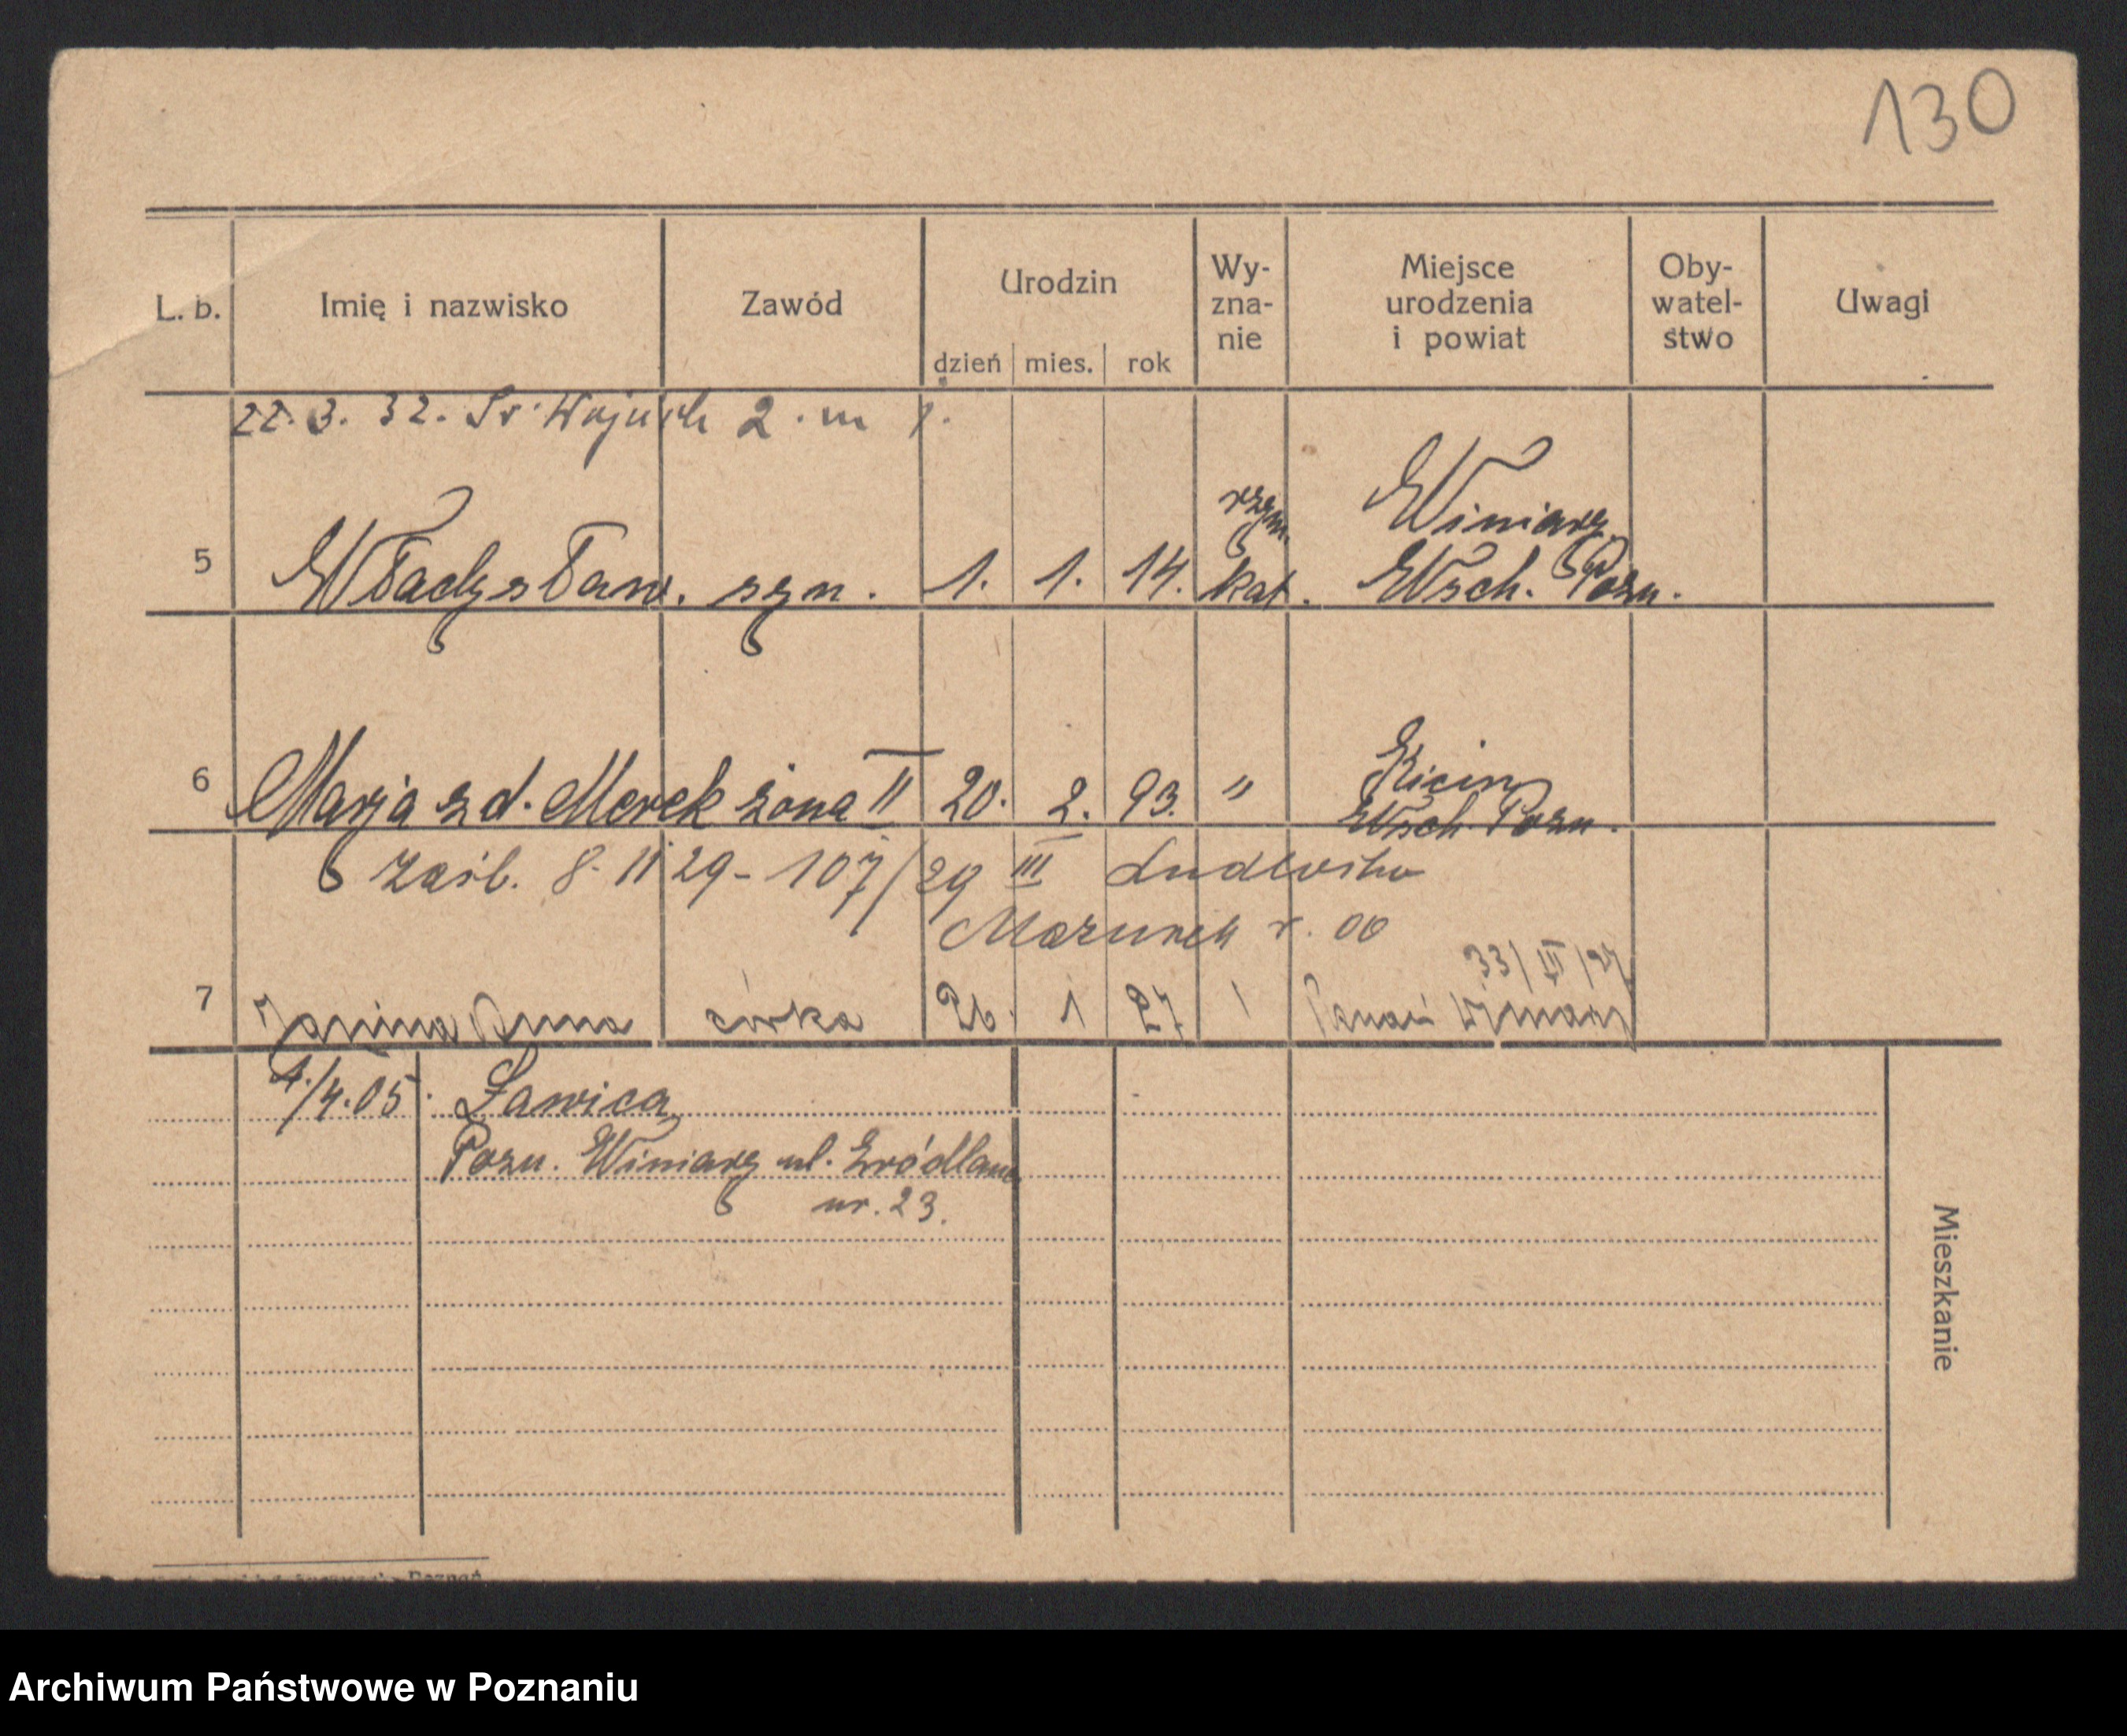 130
L. b. Imię i nazwisko Zawód Urodzin dzień mies. rok Wy-zna-nie Miejsce urodzenia i powiat Oby-watel-stwo Uwagi
22. 3. 32. Św. Wojciech 2. m 1.
5 Władysław. syn. 1. 1. 14. rzym. kat. Winiary Wsch. Pozn.
6 Marja z d. Merek żona II 20. 2. 93. " Kicin Wsch. Pozn.
zaśl. 8. 11 29 - 107/29 III Ludwika
Mazurek r. 00
33/III/27
7 Janina Anna córka 26. 1 27 Poznań Winiary
1./4.05. Ławica
Pozn. Winiary ul. Źródlana
nr. 23.
Mieszkanie
Poznań
Archiwum Państwowe w Poznaniu